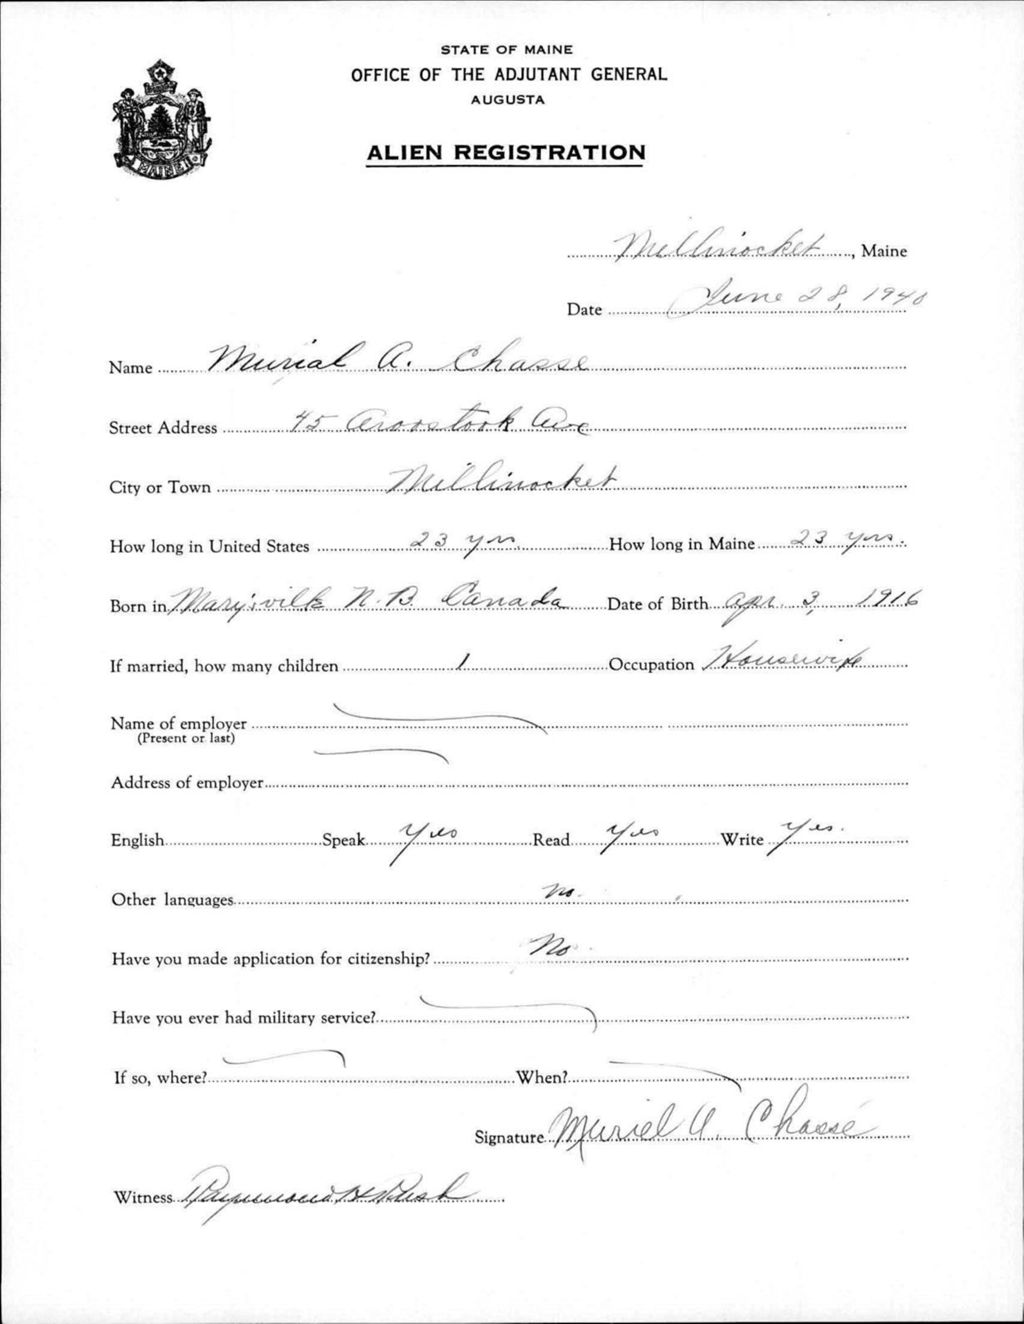 STATE OF MAINE
OFFICE OF THE ADJUTANT GENERAL
AUGUSTA
ALIEN REGISTRATION
MAINE
Millinocket, Maine
Date June 28, 1940
Name Murial A. Chasse
Street Address 45 Aroostook Ave
City or Town Millinocket
How long in United States 23 yrs. How long in Maine 23 yrs.
Born in Marysville N.B. Canada Date of Birth Apr. 3, 1916
If married, how many children 1 Occupation Housewife
Name of employer
(Present or last)
Address of employer
English Speak Yes Read Yes Write Yes.
Other languages no.
Have you made application for citizenship? No
Have you ever had military service?
If so, where? When?
Signature Muriel A. Chassé
Witness Raymond H